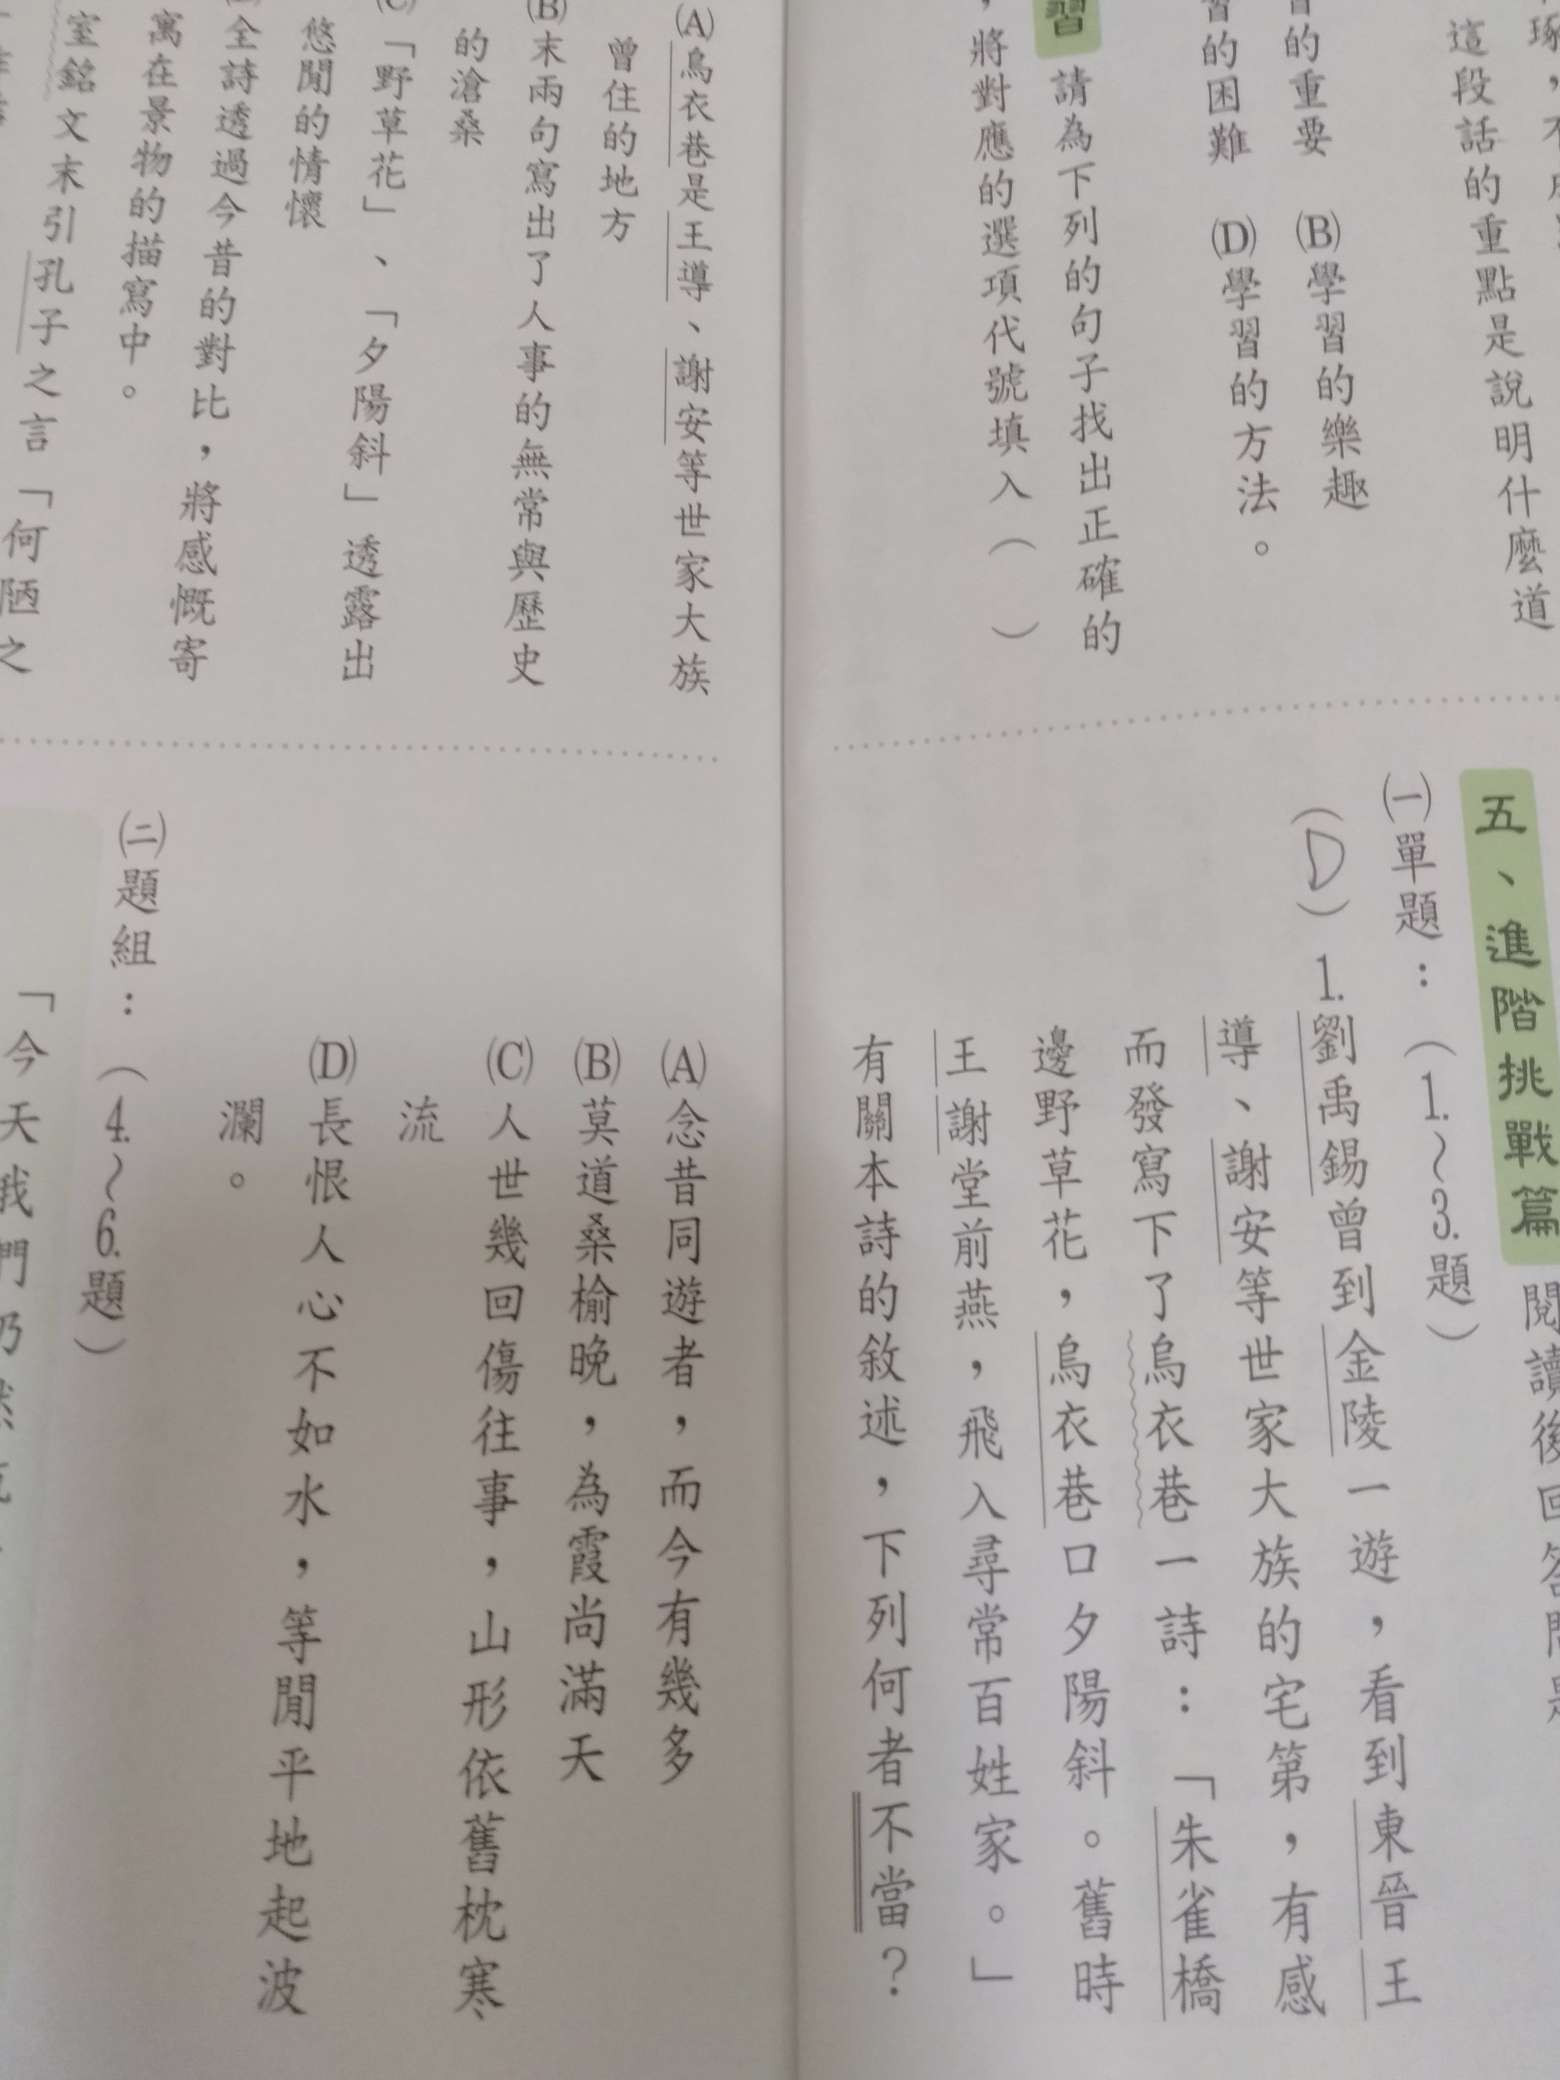 這段話的重點是說明什麼道
的重要　(B)學習的樂趣
習的困難　(D)學習的方法。
習　請為下列的句子找出正確的
，將對應的選項代號填入（　）
五、進階挑戰篇　閱讀後回答問
㈠單題：（1.～3.題）
（D）1.劉禹錫曾到金陵一遊，看到東晉王
導、謝安等世家大族的宅第，有感
而發寫下了烏衣巷一詩：「朱雀橋
邊野草花，烏衣巷口夕陽斜。舊時
王謝堂前燕，飛入尋常百姓家。」
有關本詩的敘述，下列何者不當？
(A)烏衣巷是王導、謝安等世家大族
曾住的地方
(B)末兩句寫出了人事的無常與歷史
的滄桑
(C)「野草花」、「夕陽斜」透露出
悠閒的情懷
全詩透過今昔的對比，將感慨寄
寓在景物的描寫中。
室銘文末引孔子之言「何陋之
(A)念昔同遊者，而今有幾多
(B)莫道桑榆晚，為霞尚滿天
(C)人世幾回傷往事，山形依舊枕寒
流
(D)長恨人心不如水，等閒平地起波
瀾。
㈡題組：（4.～6.題）
「今天我們仍然